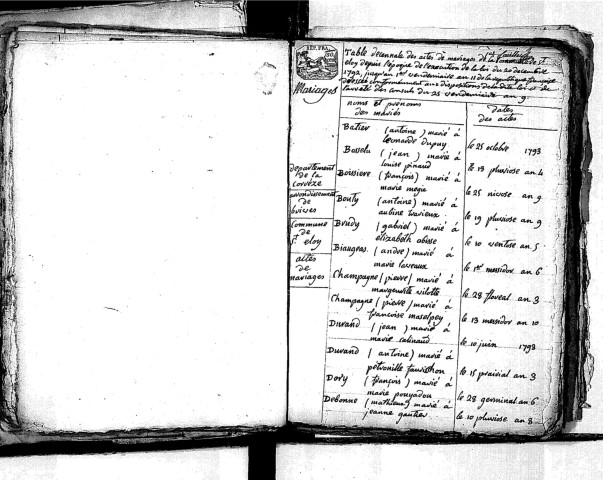 REP. FRA.
Table decennale des actes de mariages de la commune de St
eloy depuis l'epoque de l'execution de la loi du 20 decembre
1792, jusqu'au 1er vendemiaire an 11 de la republique francaise
dressée conformement aux dispositions de la dite loi et de
l'arreté des consuls du 25 vendemiaire an 9
Mariages
noms et prenoms
des mariés
dates
des actes
departement
de la
corrèze
arrondissement
de
brives
commune
de
St eloy
actes
de
mariages
Batier (antoine) marié à
leonarde dupuy le 25 octobre 1793
Bosselu (jean) marié à
louise pinaud le 13 pluviose an 4
Boissiere (françois) marié à
marie megia le 25 nivose an 9
Bouty (antoine) marié à
aubine le 19 pluviose an 9
Brudy (gabriel) marié à
elizabeth le 10 ventose an 5
Biaugras (andre) marié à
marie le 1er messidor an 6
Champagne (pierre) marié à
marguerite vilotte le 28 floreal an 3
Champagne (pierre) marié à
francoise le 13 messidor an 10
Durand (jean) marié à
marie le 10 juin 1793
Durand (antoine) marié à
petronille le 15 prairial an 3
Dory (françois) marié à
marie pouyadou le 28 germinal an 6
Debonne (mathieu) marié à
jeanne gautier le 10 pluviose an 8